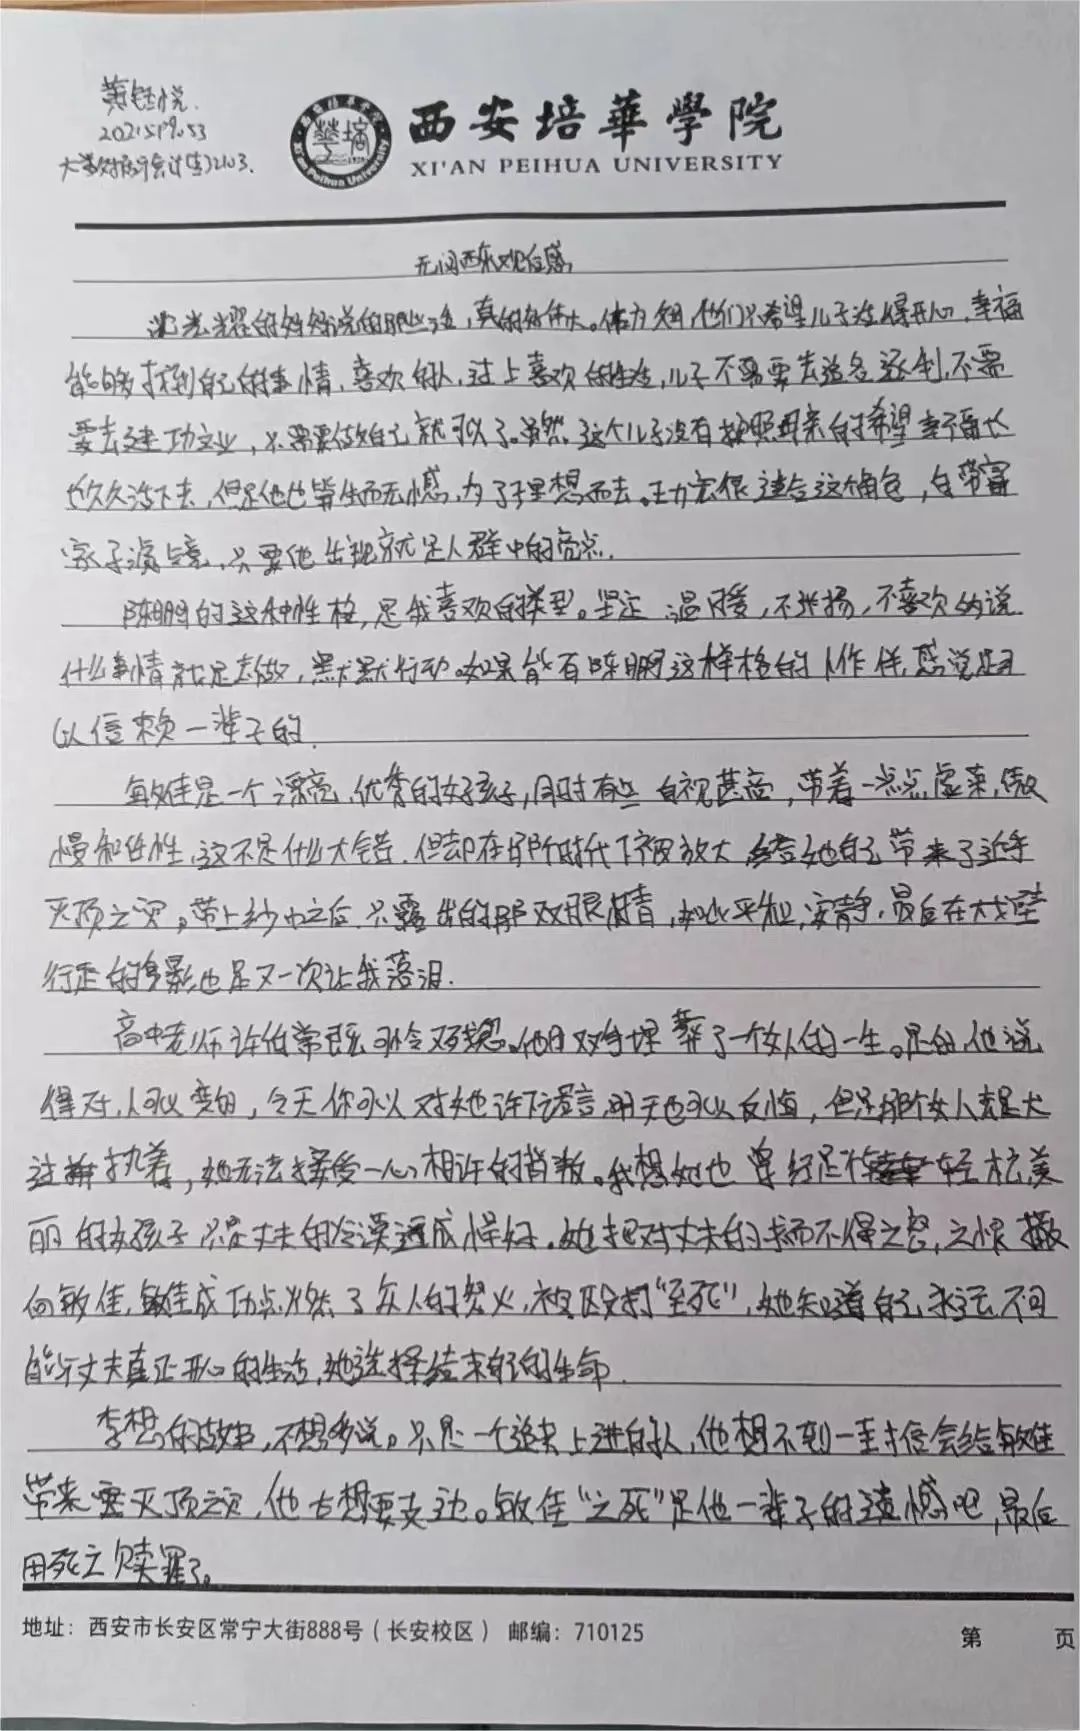 西安培華學院
XI'AN PEIHUA UNIVERSITY
无问西东观后感
沈光耀的妈妈说的那些话,真的好伟大。体力短,他们只希望儿子活得开心,幸福
能够找到自己的事情,喜欢的人,过上喜欢的生活,儿子不需要去追名逐利,不需
要去建功立业,只需要做自己就可以了。虽然这个儿子没有按照母亲的希望幸福长
长久久活下去,但是他也毕生而无憾,为了理想而去。王力宏很适合这个角色,自带富
家子滤镜,只要他出现就是人群中的亮点.
陈鹏的这种性格,是我喜欢的类型。坚定 温暖,不张扬,不喜欢的说
什么事情就是去做,默默行动。如果能有陈鹏这样格的人作伴,感觉是可
以信赖一辈子的.
敏佳是一个漂亮,优秀的女孩子,同时有些自视甚高,带着一点点虚荣,傲
慢和任性,这不是什么大错.但却在那个时代下被放大,给她自己带来了近乎
灭顶之灾。带上纱巾之后.只露出的那双眼睛,如此平和,安静,最后在大戈壁
行走的身影也是又一次让我落泪.
高中老师许伯常既可怜又残忍。他用双手埋葬了一个女人的一生。是的,他说
得对,人可以变的,今天你可以对她许下诺言,明天也可以反悔,但是那个女人真是太
过执着,她无法接受一心相许的背叛。我想她也曾经是个轻松美
丽的女孩子只是丈夫的冷漠逼成悍妇。她把对丈夫的求而不得之怒,之恨 撒
向敏佳,敏佳成功点燃了众人的怒火,被殴打"至死",她知道自己永远不可
能与丈夫真正开心的生活,她选择结束自己的生命.
李想的故事,不想多说。只是一个追求上进的人,他想不到一封信会给敏佳
带来灭顶之灾,他也想要支边。敏佳"之死"是他一辈子的遗憾吧,最后
用死之赎罪了。
地址:西安市长安区常宁大街888号(长安校区) 邮编:710125
第 页